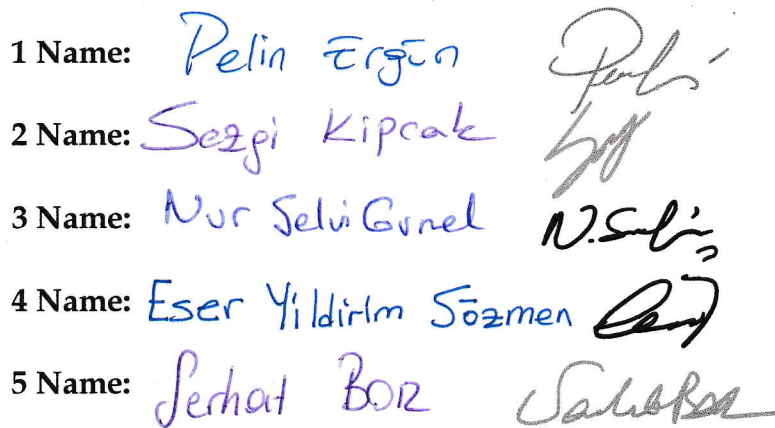 1 Name: Pelin Ergün
2 Name: Sezgi Kipcak
3 Name: Nur Selvi Gunel N.Selvi
4 Name: Eser Yildirim Sözmen
5 Name: Serhat BOR Serhat BOR